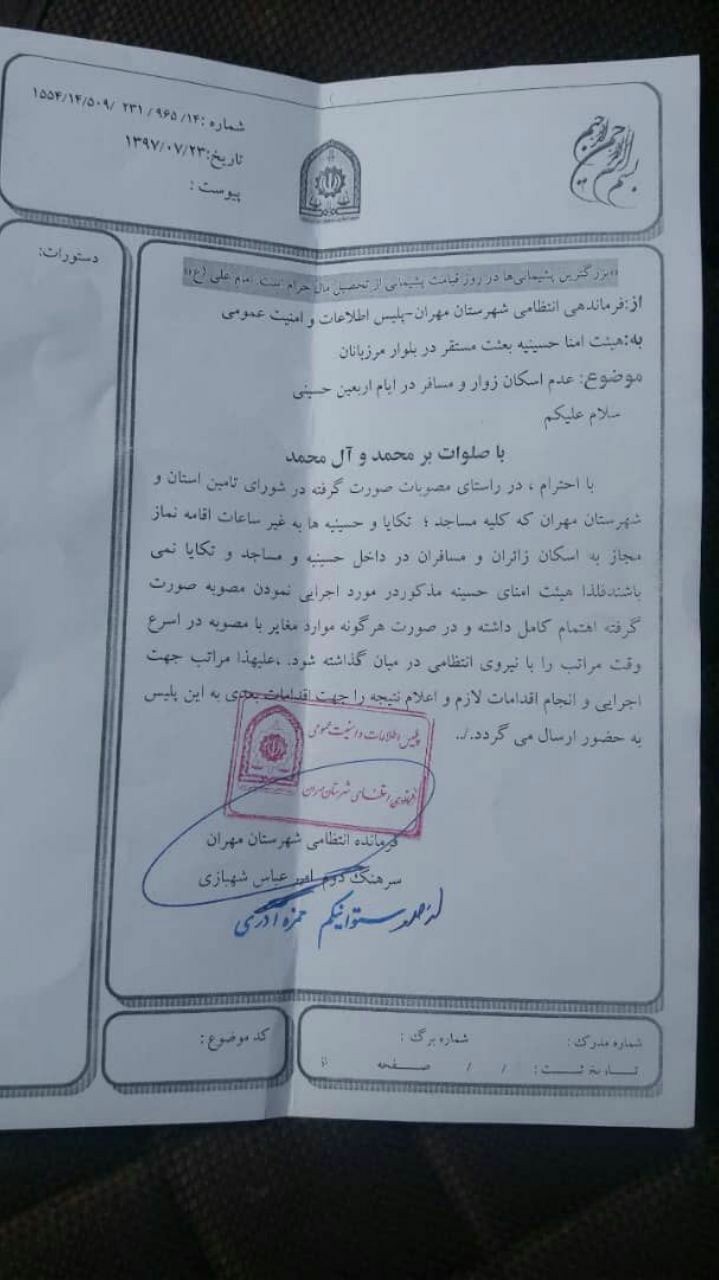 بسم الله الرحمن الرحیم
شماره :۱۵۵۴/۱۴/۵۰۹/ ۲۳۱ / ۹۶۵ /۱۴
تاریخ:۱۳۹۷/۰۷/۲۳
پیوست :
دستورات:
«بزرگترین پشیمانی‌ها در روز قیامت پشیمانی از تحصیل مال حرام است. امام علی (ع)»
از:فرماندهی انتظامی شهرستان مهران-پلیس اطلاعات و امنیت عمومی
به:هیئت امنا حسینیه بعثت مستقر در بلوار مرزبانان
موضوع: عدم اسکان زوار و مسافر در ایام اربعین حسینی
سلام علیکم
با صلوات بر محمد و آل محمد
با احترام ، در راستای مصوبات صورت گرفته در شورای تامین استان و
شهرستان مهران که کلیه مساجد ؛ تکایا و حسینیه ها به غیر ساعات اقامه نماز
مجاز به اسکان زائران و مسافران در داخل حسینیه و مساجد و تکایا نمی
باشندفلذا هیئت امنای حسینه مذکوردر مورد اجرایی نمودن مصوبه صورت
گرفته اهتمام کامل داشته و در صورت هرگونه موارد مغایر با مصوبه در اسرع
وقت مراتب را با نیروی انتظامی در میان گذاشته شود. ،علیهذا مراتب جهت
اجرایی و انجام اقدامات لازم و اعلام نتیجه را جهت اقدامات بعدی به این پلیس
به حضور ارسال می گردد./..
پلیس اطلاعات و امنیت عمومی
فرماندهی انتظامی شهرستان مهران
فرمانده انتظامی شهرستان مهران
سرهنگ دوم عباس شهبازی
ستوانیکم حمزه آذری
شماره مدرک :
شماره برگ :
کد موضوع :
تاریخ ثبت : / /
صفحه